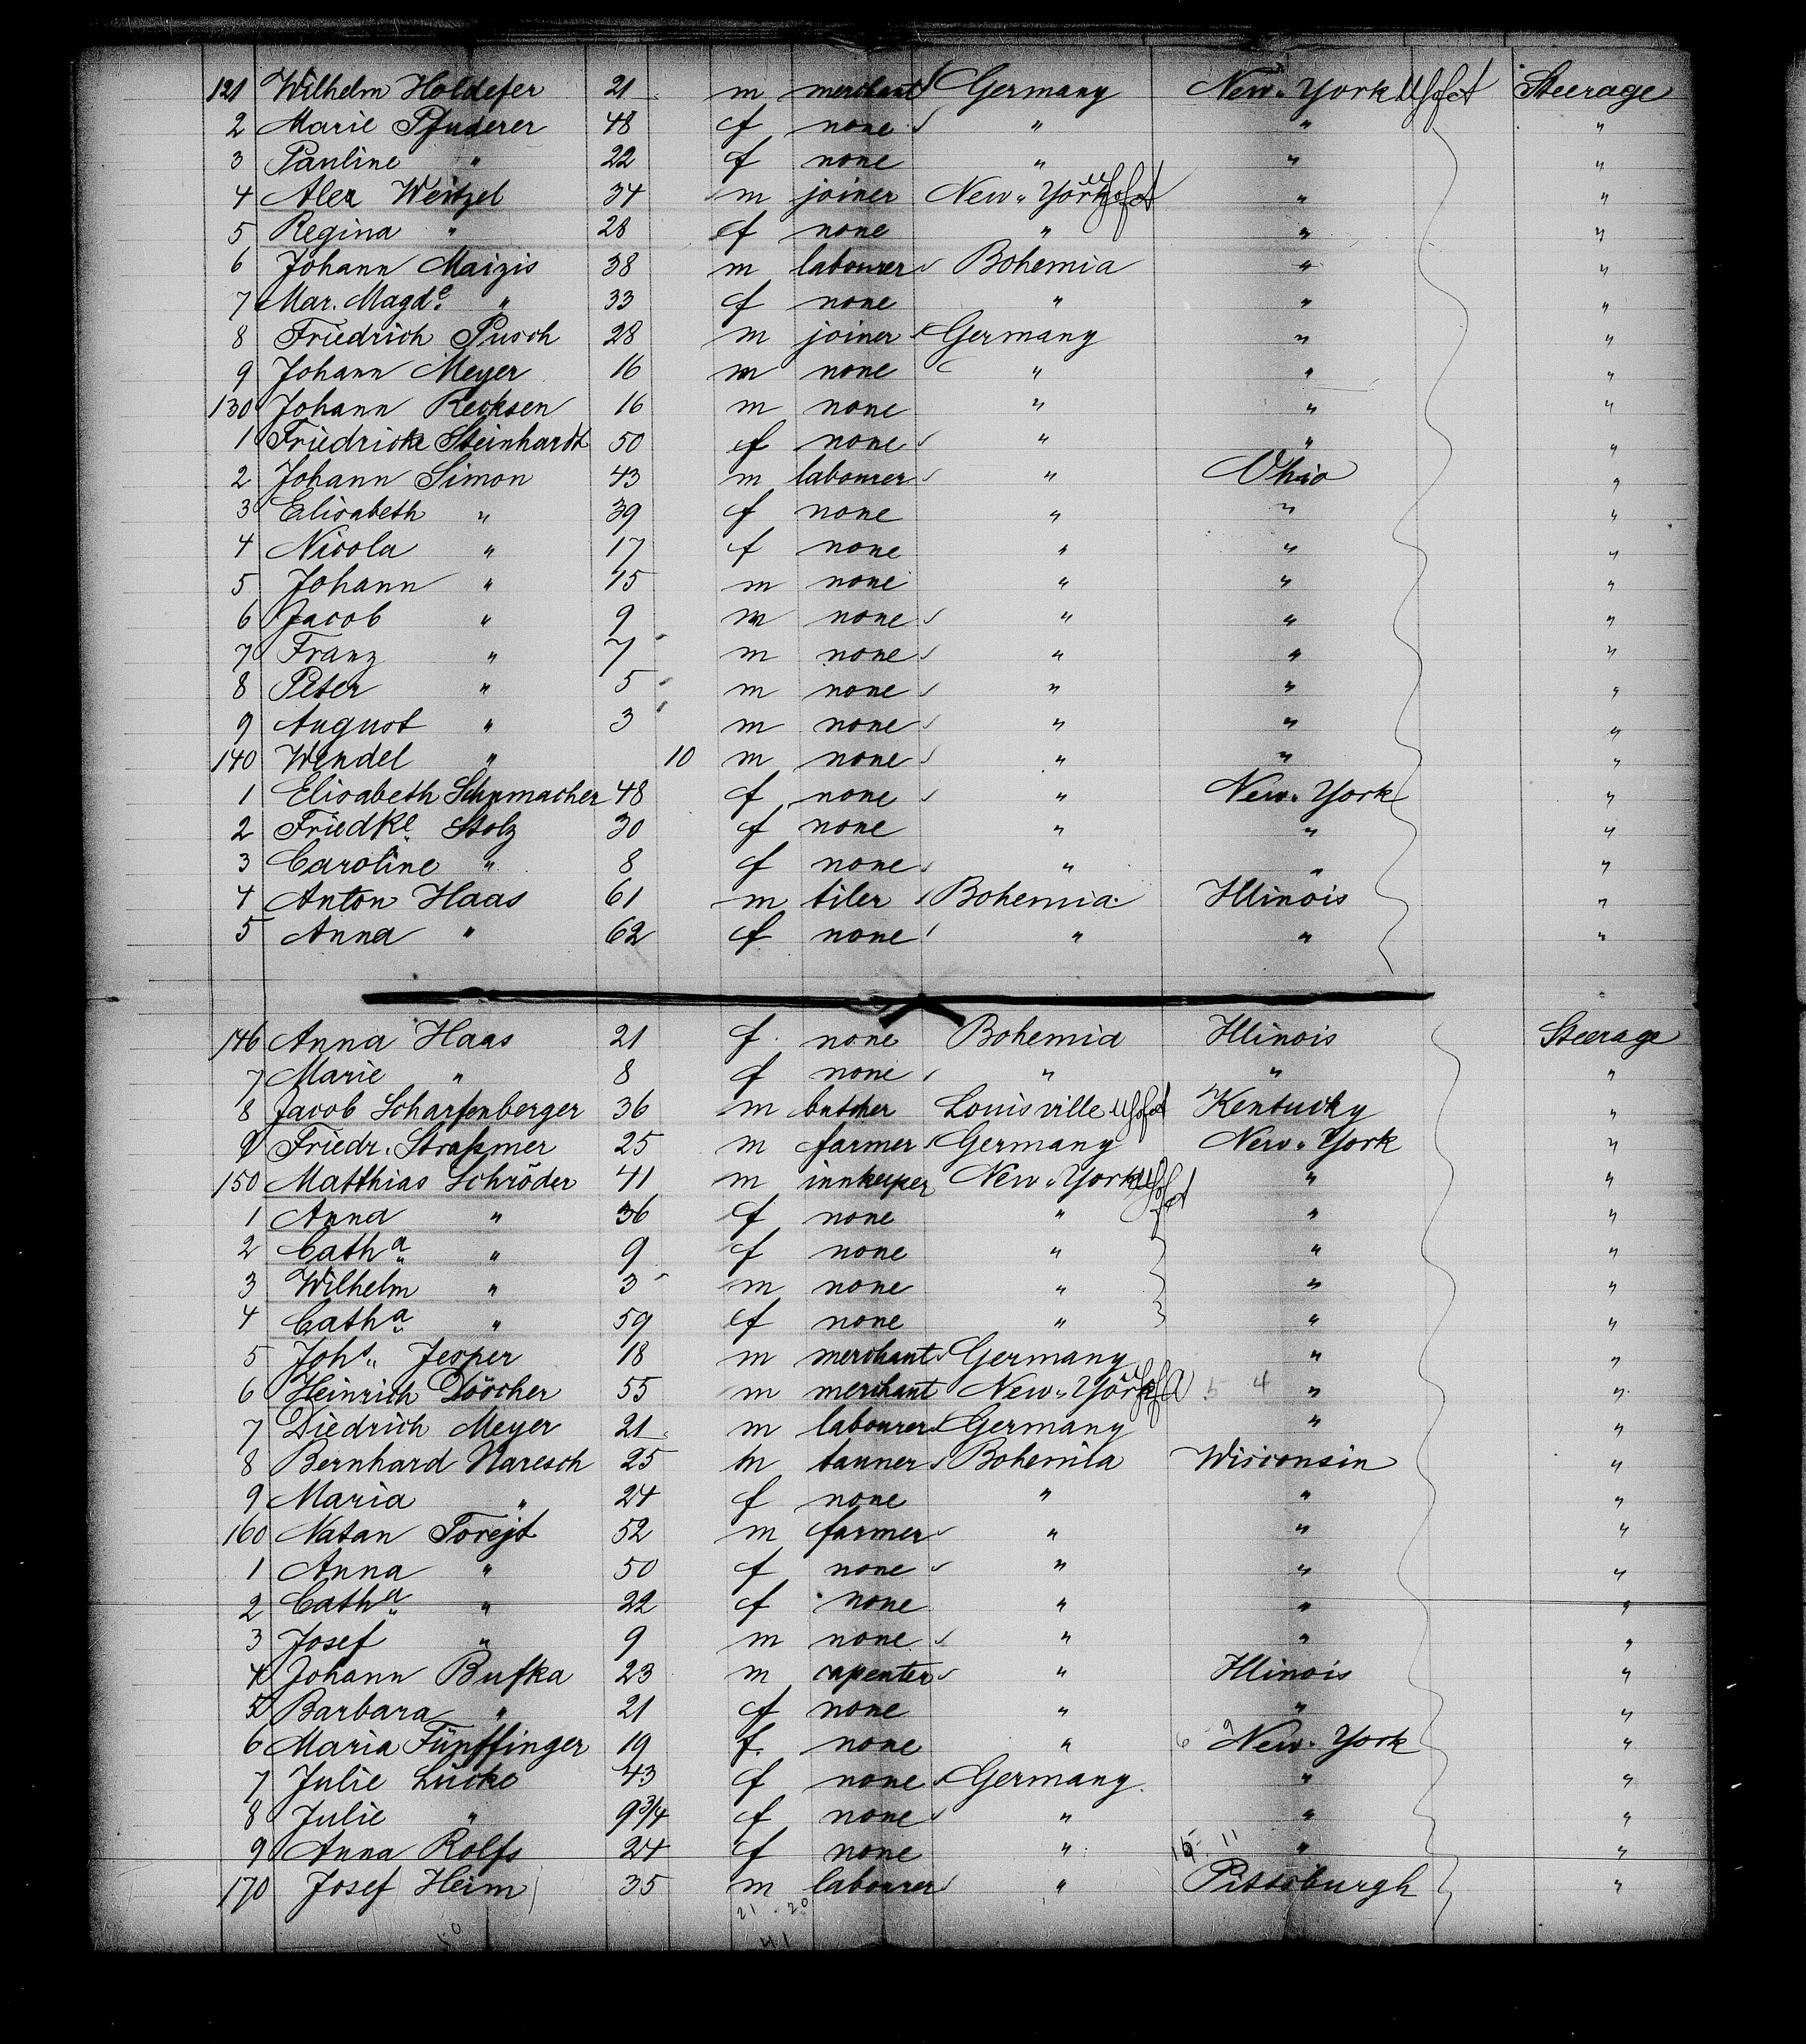 121 Wilhelm Holdefer 21 m merchant Germany New-York U S of A Steerage
2 Marie Pfuderer 48 f none " " "
3 Pauline " 22 f none " " "
4 Alex Weitzel 34 m joiner New-York U S of A " "
5 Regina " 28 f none " " "
6 Johann Maizis 38 m labourer Bohemia " "
7 Mar. Magde. " 33 f none " " "
8 Friedrich Pusch 28 m joiner Germany " "
9 Johann Meyer 16 m none " " "
130 Johann Recksen 16 m none " " "
1 Friedricke Steinhardt 50 f none " " "
2 Johann Simon 43 m labourer " Ohio "
3 Elisabeth " 39 f none " " "
4 Nicola " 17 f none " " "
5 Johann " 15 m none " " "
6 Jacob " 9 m none " " "
7 Franz " 7 m none " " "
8 Peter " 5 m none " " "
9 August " 3 m none " " "
140 Wendel " 10 m none " " "
1 Elisabeth Schumacher 48 f none " New-York "
2 Friedke Stolz 30 f none " " "
3 Caroline " 8 f none " " "
4 Anton Haas 61 m tiler Bohemia Illinois "
5 Anna " 62 f none " " "
146 Anna Haas 21 f. none Bohemia Illinois Steerage
7 Marie " 8 f none " " "
8 Jacob Scharfenberger 36 m butcher Louisville U S of A Kentucky "
9 Friedr. Straßmer 25 m farmer Germany New-York "
150 Matthias Schröder 41 m innkeeper New-York U S of A " "
1 Anna " 36 f none " " "
2 Catha " 9 f none " " "
3 Wilhelm " 3 m none " " "
4 Catha " 59 f none " " "
5 Johs. Jesper 18 m merchant Germany " "
6 Heinrich Döscher 55 m merchant New-York U S of A 5 4 " "
7 Diedrich Meyer 21 m labourer Germany " "
8 Bernhard Naresch 25 m tanner Bohemia Wisconsin "
9 Maria " 24 f none " " "
160 Natan Torejt 52 m farmer " " "
1 Anna " 50 f none " " "
2 Catha " 22 f none " " "
3 Josef " 9 m none " " "
4 Johann Bufka 23 m capenter " Illinois "
5 Barbara " 21 f none " " "
6 Maria Fünffinger 19 f. none " 6 9 New-York "
7 Julie Lücke 43 f none Germany " "
8 Julie " 9 3/4 f none " " "
9 Anna Rolfs 24 f none " 11 " "
170 Josef Heim 35 m labourer " Pittsburgh "
21 20
41